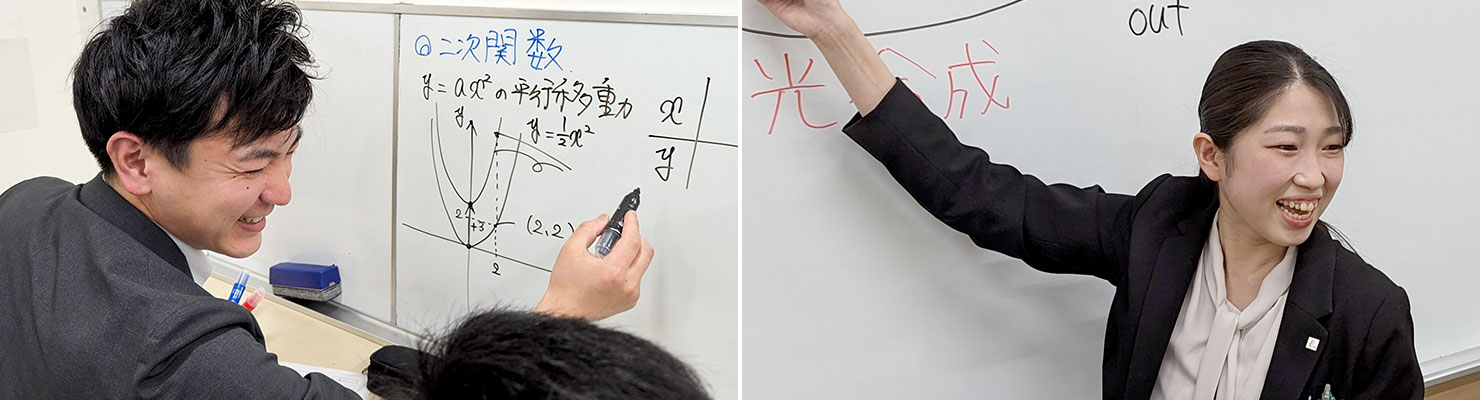 ◎二次関数
y=ax²の平行移動
y
y=½x²
2
+3
(2,2)
2
x
y
out
光合成